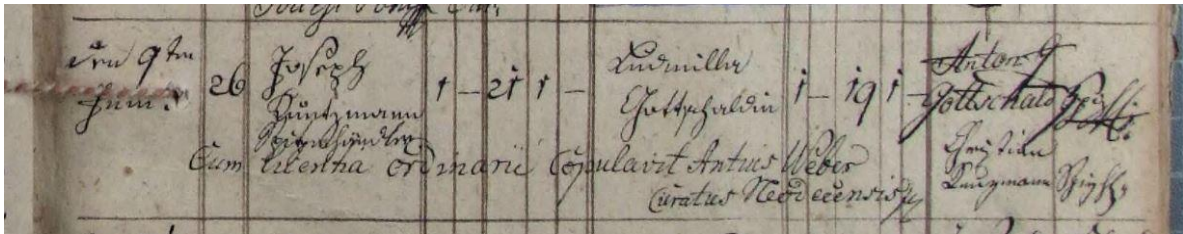 den 9ten
Juni
26
Joseph
Kuntzmann
Spitzenhändler
1 — 21 1 —
Ludmilla
Gottschaldin
1 — 19 1 —
Anton
Gottschald
Christian
Kunzmann
Cum licentia ordinarii Copulavit Antius Weber
Curatus Neodecensis